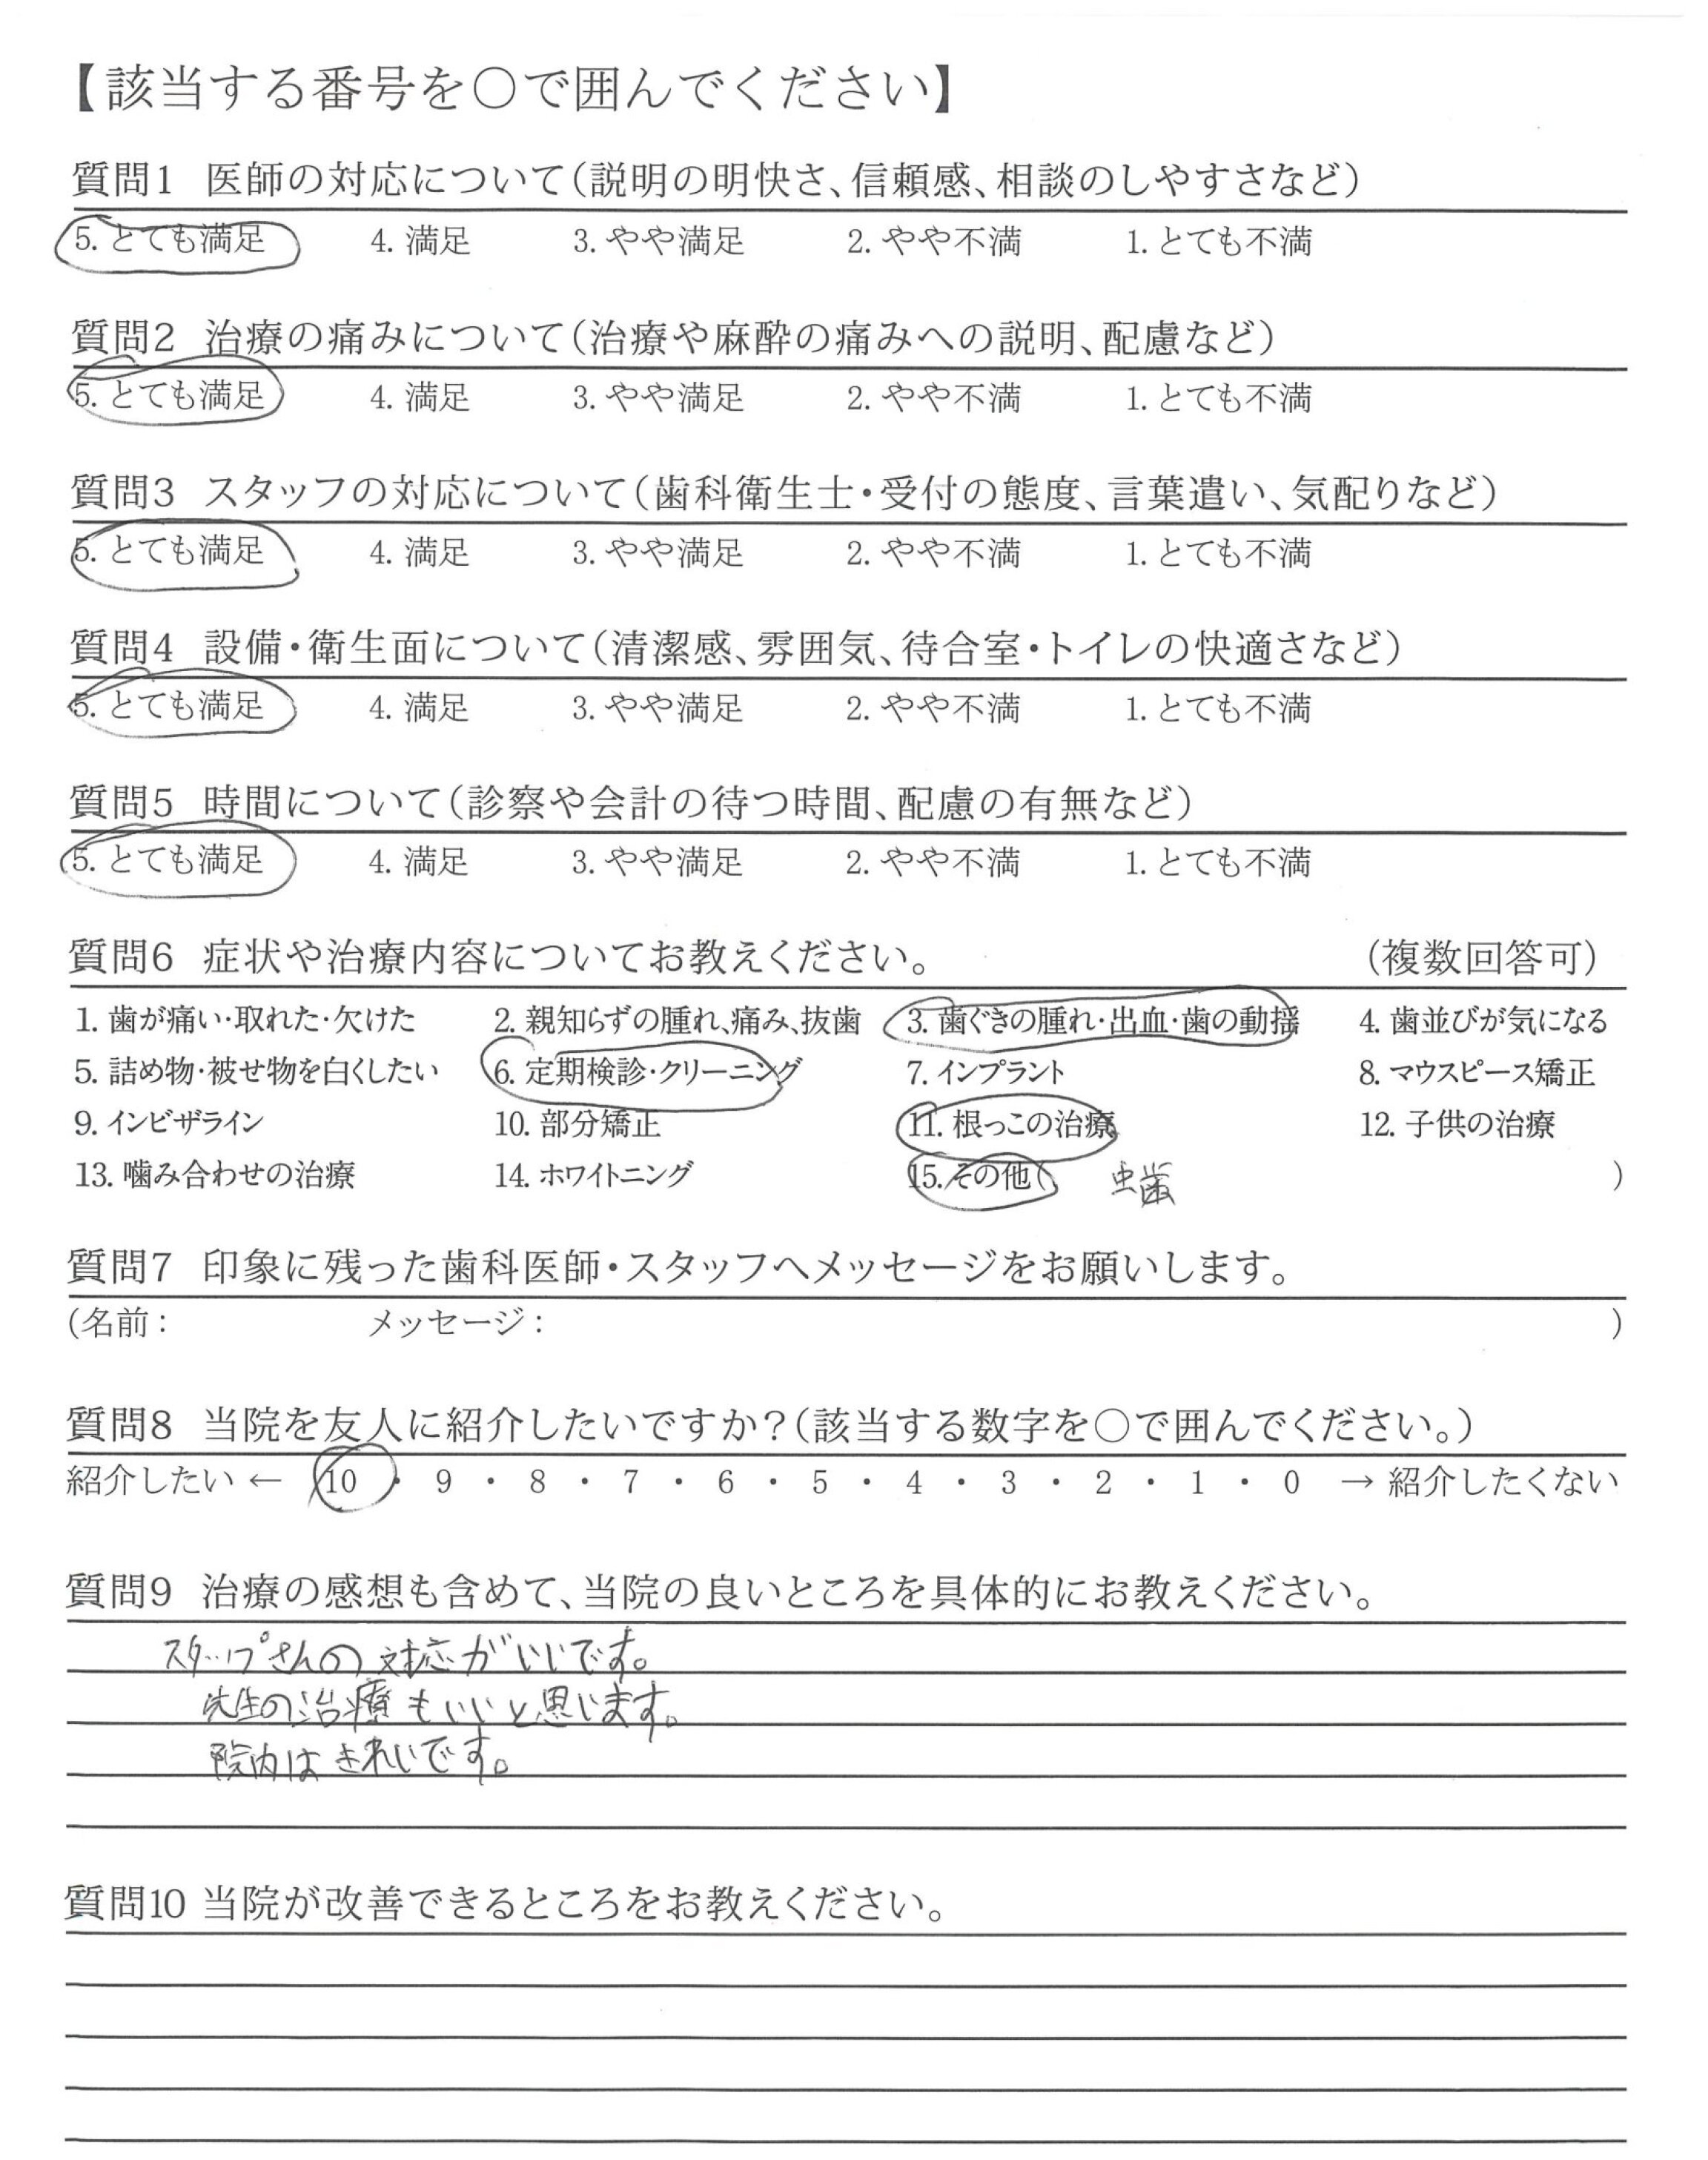 【該当する番号を○で囲んでください】
質問1 医師の対応について（説明の明快さ、信頼感、相談のしやすさなど）
5. とても満足 4. 満足 3. やや満足 2. やや不満 1. とても不満
質問2 治療の痛みについて（治療や麻酔の痛みへの説明、配慮など）
5. とても満足 4. 満足 3. やや満足 2. やや不満 1. とても不満
質問3 スタッフの対応について（歯科衛生士・受付の態度、言葉遣い、気配りなど）
5. とても満足 4. 満足 3. やや満足 2. やや不満 1. とても不満
質問4 設備・衛生面について（清潔感、雰囲気、待合室・トイレの快適さなど）
5. とても満足 4. 満足 3. やや満足 2. やや不満 1. とても不満
質問5 時間について（診察や会計の待つ時間、配慮の有無など）
5. とても満足 4. 満足 3. やや満足 2. やや不満 1. とても不満
質問6 症状や治療内容についてお教えください。 （複数回答可）
1. 歯が痛い・取れた・欠けた 2. 親知らずの腫れ、痛み、抜歯 3. 歯ぐきの腫れ・出血・歯の動揺 4. 歯並びが気になる
5. 詰め物・被せ物を白くしたい 6. 定期検診・クリーニング 7. インプラント 8. マウスピース矯正
9. インビザライン 10. 部分矯正 11. 根っこの治療 12. 子供の治療
13. 噛み合わせの治療 14. ホワイトニング 15. その他（ 虫歯 ）
質問7 印象に残った歯科医師・スタッフへメッセージをお願いします。
（名前： メッセージ： ）
質問8 当院を友人に紹介したいですか？（該当する数字を○で囲んでください。）
紹介したい ← 10 ・ 9 ・ 8 ・ 7 ・ 6 ・ 5 ・ 4 ・ 3 ・ 2 ・ 1 ・ 0 → 紹介したくない
質問9 治療の感想も含めて、当院の良いところを具体的にお教えください。
スタップさんの対応がいいです。
先生の治療もいいと思います。
院内はきれいです。
質問10 当院が改善できるところをお教えください。